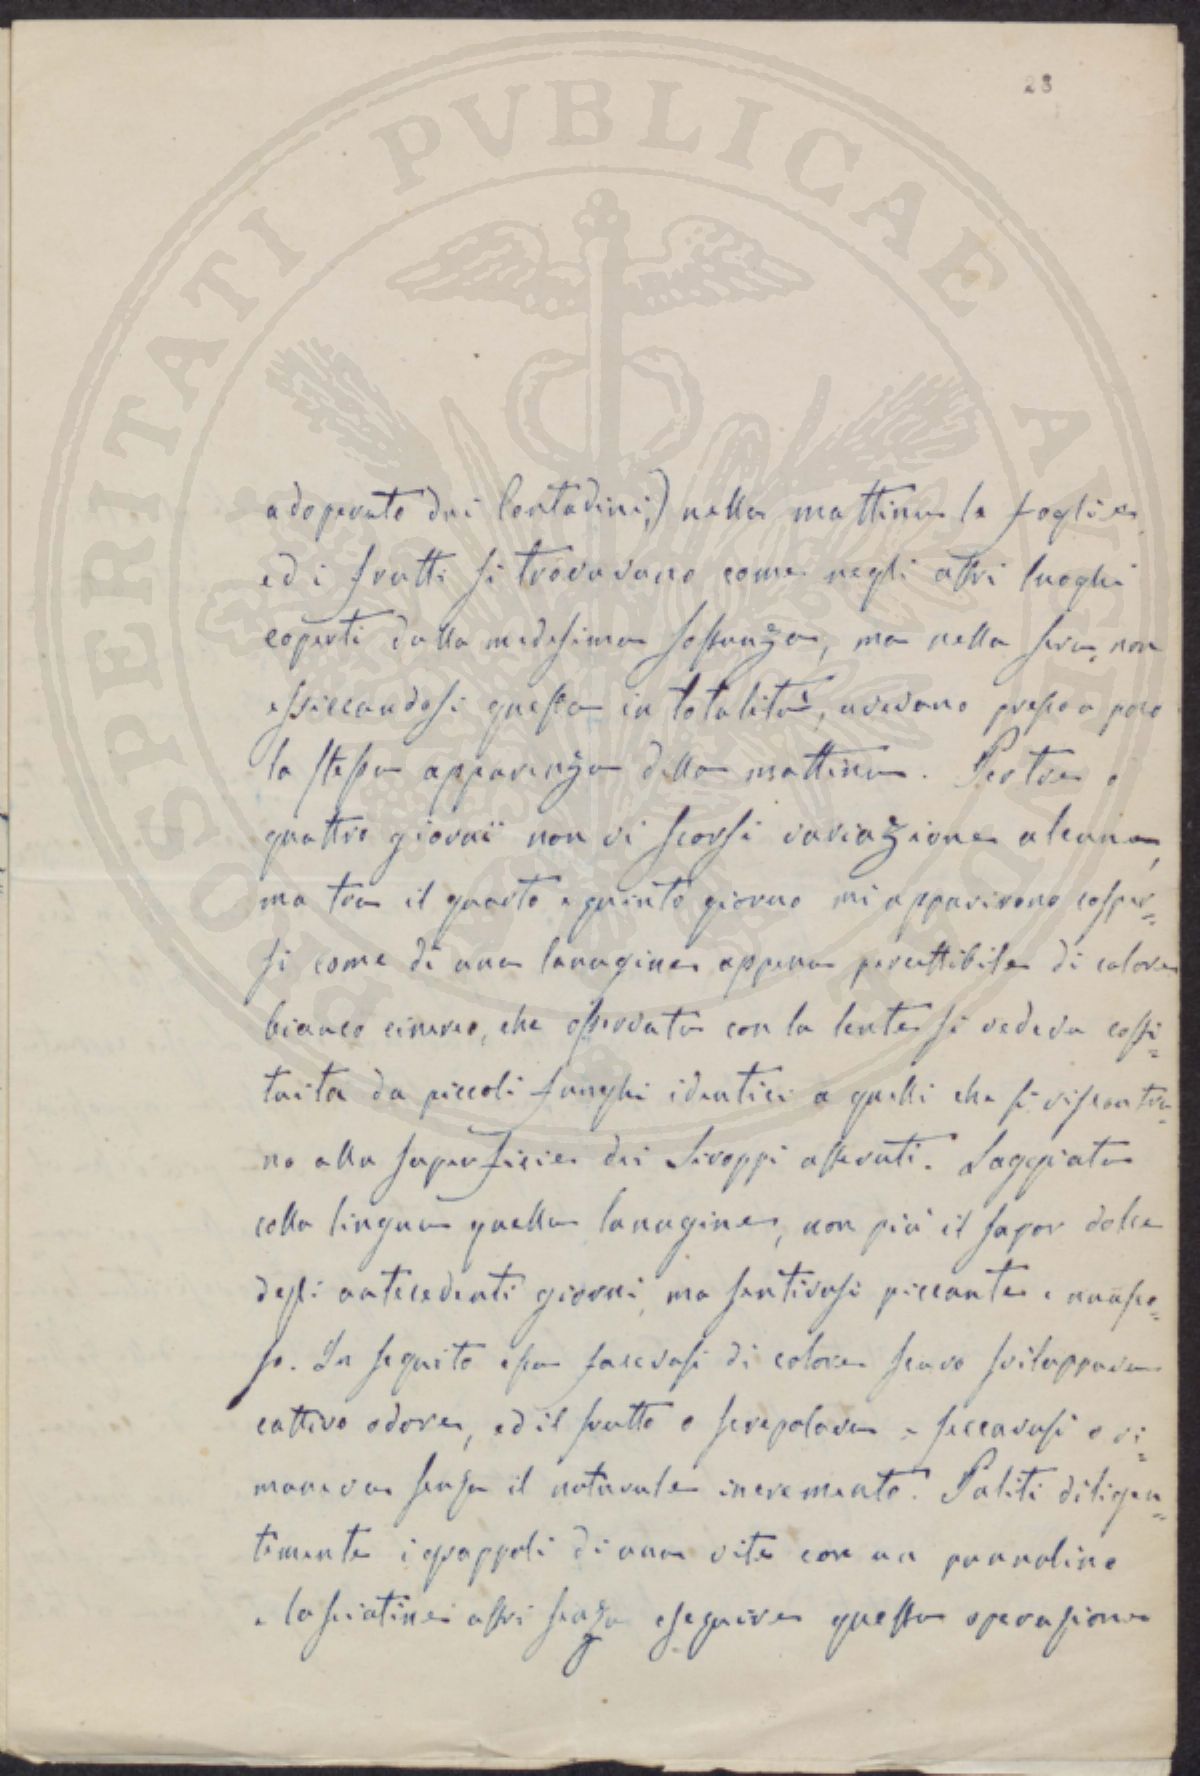 28
PROSPERITATI PVBLICAE AVGENDAE
adoperato dai Contadini,) nella mattina le foglie
ed i frutti si trovavano come negli altri luoghi
coperti dalla medesima sostanza, ma nella sera, non
essiccandosi questa in totalità, avevano presso a poco
la stessa apparenza della mattina. Per tre o
quattro giorni non vi scorsi variazione alcuna,
ma tra il quarto e quinto giorno mi apparirono cosper=
si come di una lanugine appena percettibile di colore
bianco cinereo, che osservata con la lente si vedeva costi=
tuita da piccoli funghi identici a quelli che si riscontra=
no alla superficie dei Siroppi alterati. Saggiata
colla lingua quella lanugine, non più il sapor dolce
degli antecedenti giorni, ma sentivasi piccante e nauseo=
so. In seguito essa facevasi di colore scuro sviluppava
cattivo odore, ed il frutto o screpolava e seccavasi o ri=
maneva senza il naturale incremento. Puliti diligen=
temente i grappoli di una vite con un pannolino
e lasciatine altri senza eseguire questa operazione